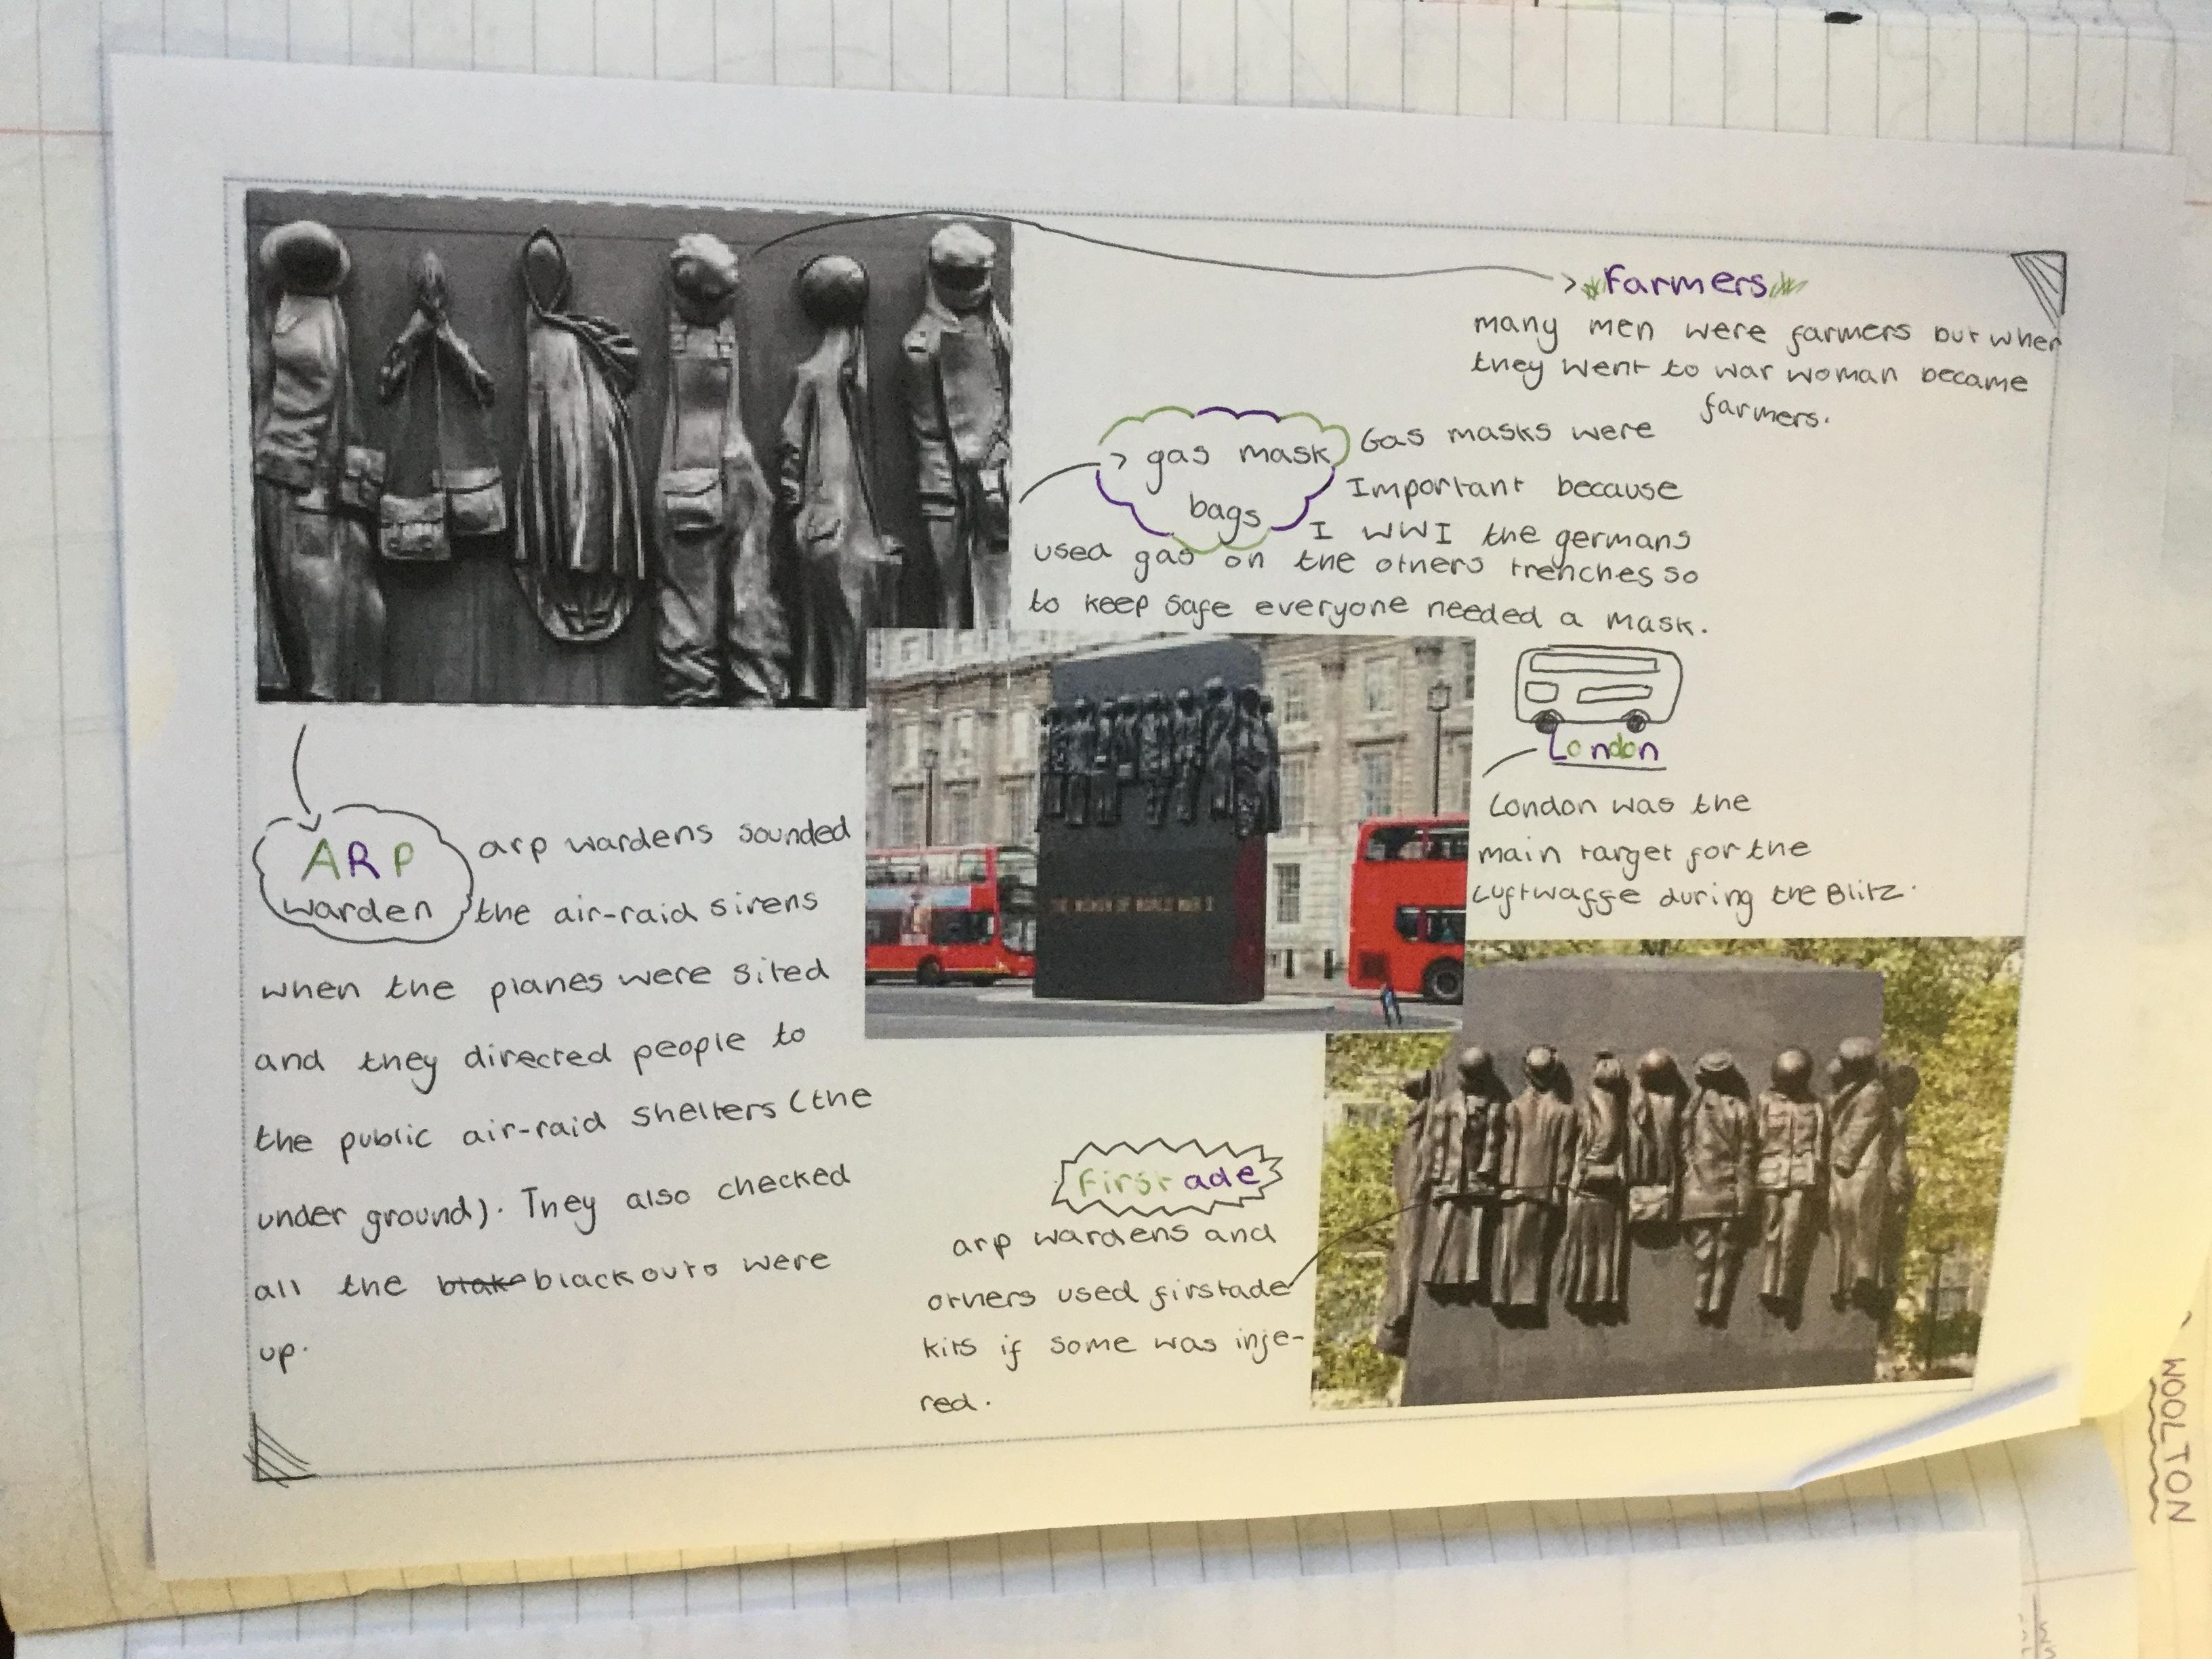 Farmers
many men were farmers but when
they went to war woman became
farmers.
gas mask
bags
Gas masks were
Important because
I WWI the germans
used gas on the others trenches so
to keep safe everyone needed a mask.
London
London was the
main target for the
Luftwaffe during the Blitz.
THE WOMEN OF WORLD WAR II
ARP
warden
arp wardens sounded
the air-raid sirens
when the planes were sited
and they directed people to
the public air-raid shelters (the
under ground). They also checked
all the blake blackouts were
up.
First ade
arp wardens and
others used firstade
kits if some was inje-
red.
WOOLTON